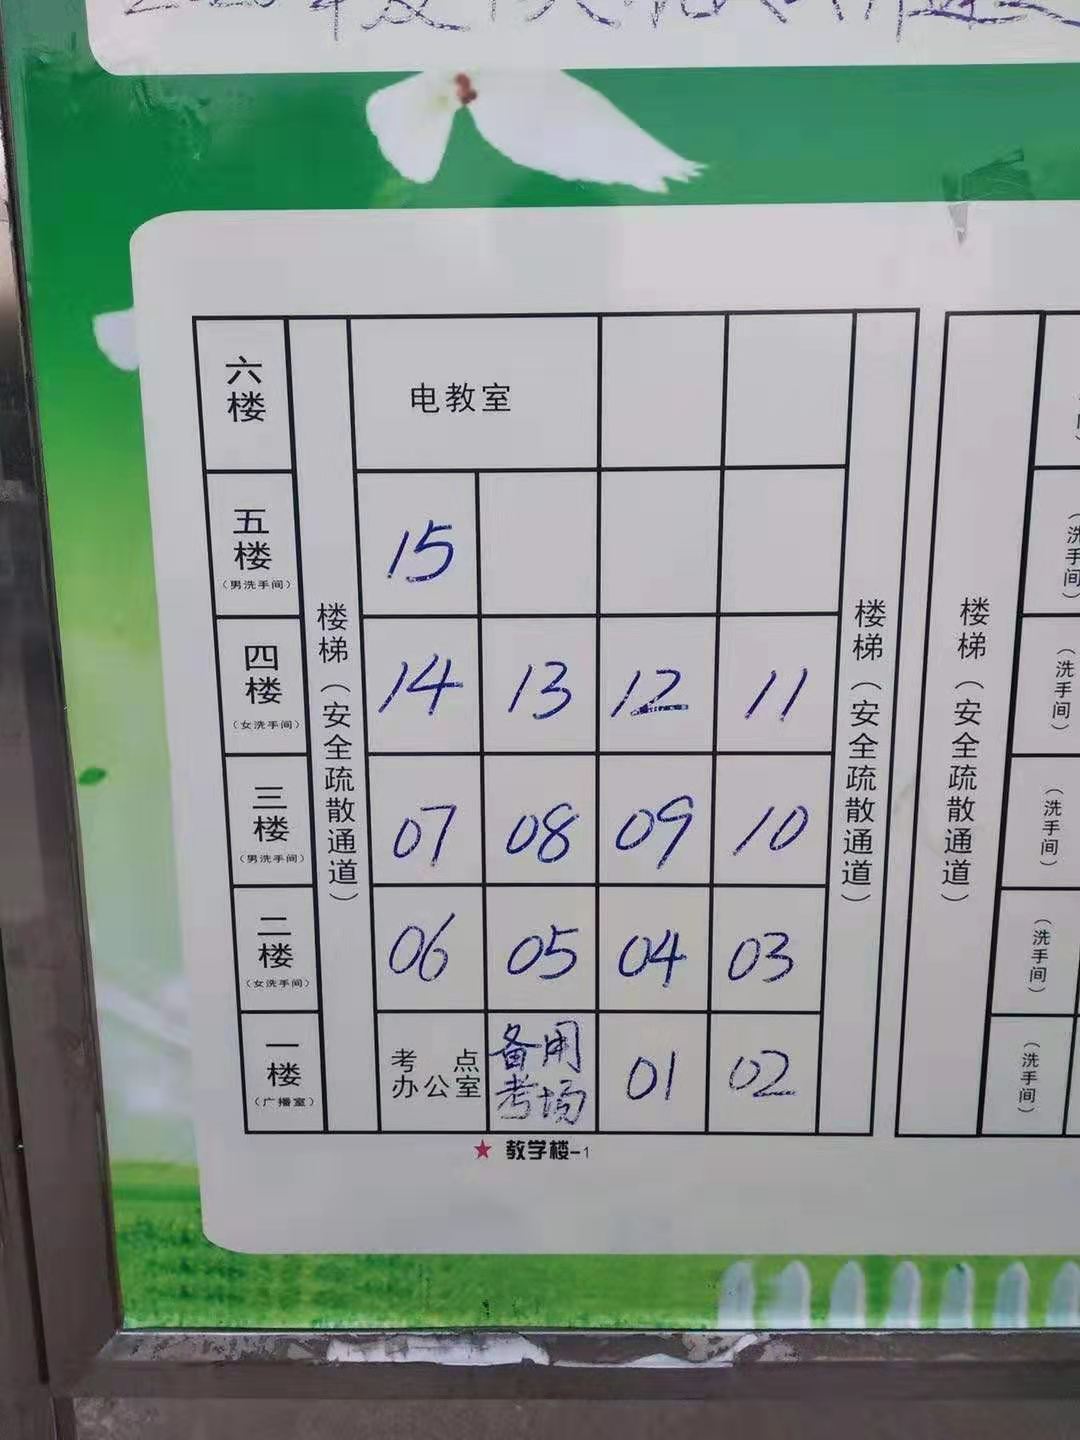 六楼 电教室
五楼 (男洗手间) 15
四楼 (女洗手间) 14 13 12 11
三楼 (男洗手间) 07 08 09 10
二楼 (女洗手间) 06 05 04 03
一楼 (广播室) 考点办公室 备用考场 01 02
楼梯（安全疏散通道）
楼梯（安全疏散通道）
★ 教学楼-1
楼梯（安全疏散通道）
（洗手间）
（洗手间）
（洗手间）
（洗手间）
（洗手间）